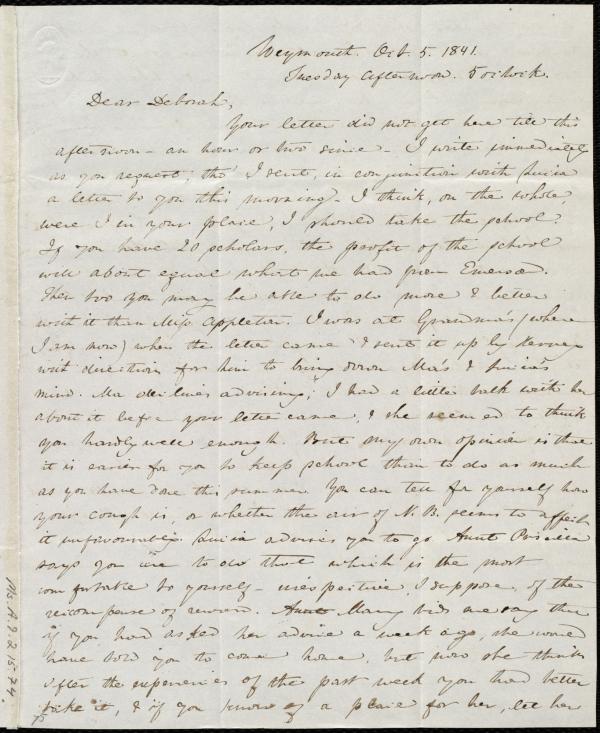 Weymouth. Oct. 5. 1841.
Tuesday afternoon. 5 o'clock.
Dear Deborah,
Your letter did not get here till this
afternoon – an hour or two since – I write immediately
as you request, tho' I sent, in conjunction with Lucia
a letter to you this morning. I think, on the whole,
were I in your place, I should take the school.
If you have 20 scholars, the profit of the school
will about equal what we had from Emerson.
Then too you may be able to do more & better
with it than Miss Appleton. I was at Grandma's (where
I am now) when the letter came & sent it up by Hervey
with direction for him to bring down Ma's & Lucia's
mind. Ma declines advising; I had a little talk with her
about it before your letter came, & she seemed to think
you hardly well enough. But my own opinion is that
it is easier for you to keep school than to do as much
as you have done this summer. You can tell for yourself how
your cough is, or whether the air of N. B. seems to affect
it unfavourably. Lucia advises you to go. Aunt Priscilla
says you are to do that which is the most
comfortable to yourself – irrespective, I suppose, of the
recompense of reward. Aunt Mary bids me say that
if you had asked her advice a week ago, she would
have told you to come home, but now she thinks
after the experiences of the past week you had better
take it, & if you know of a place for her, let her
Ms. A. 9. 2. 15. 74.
75